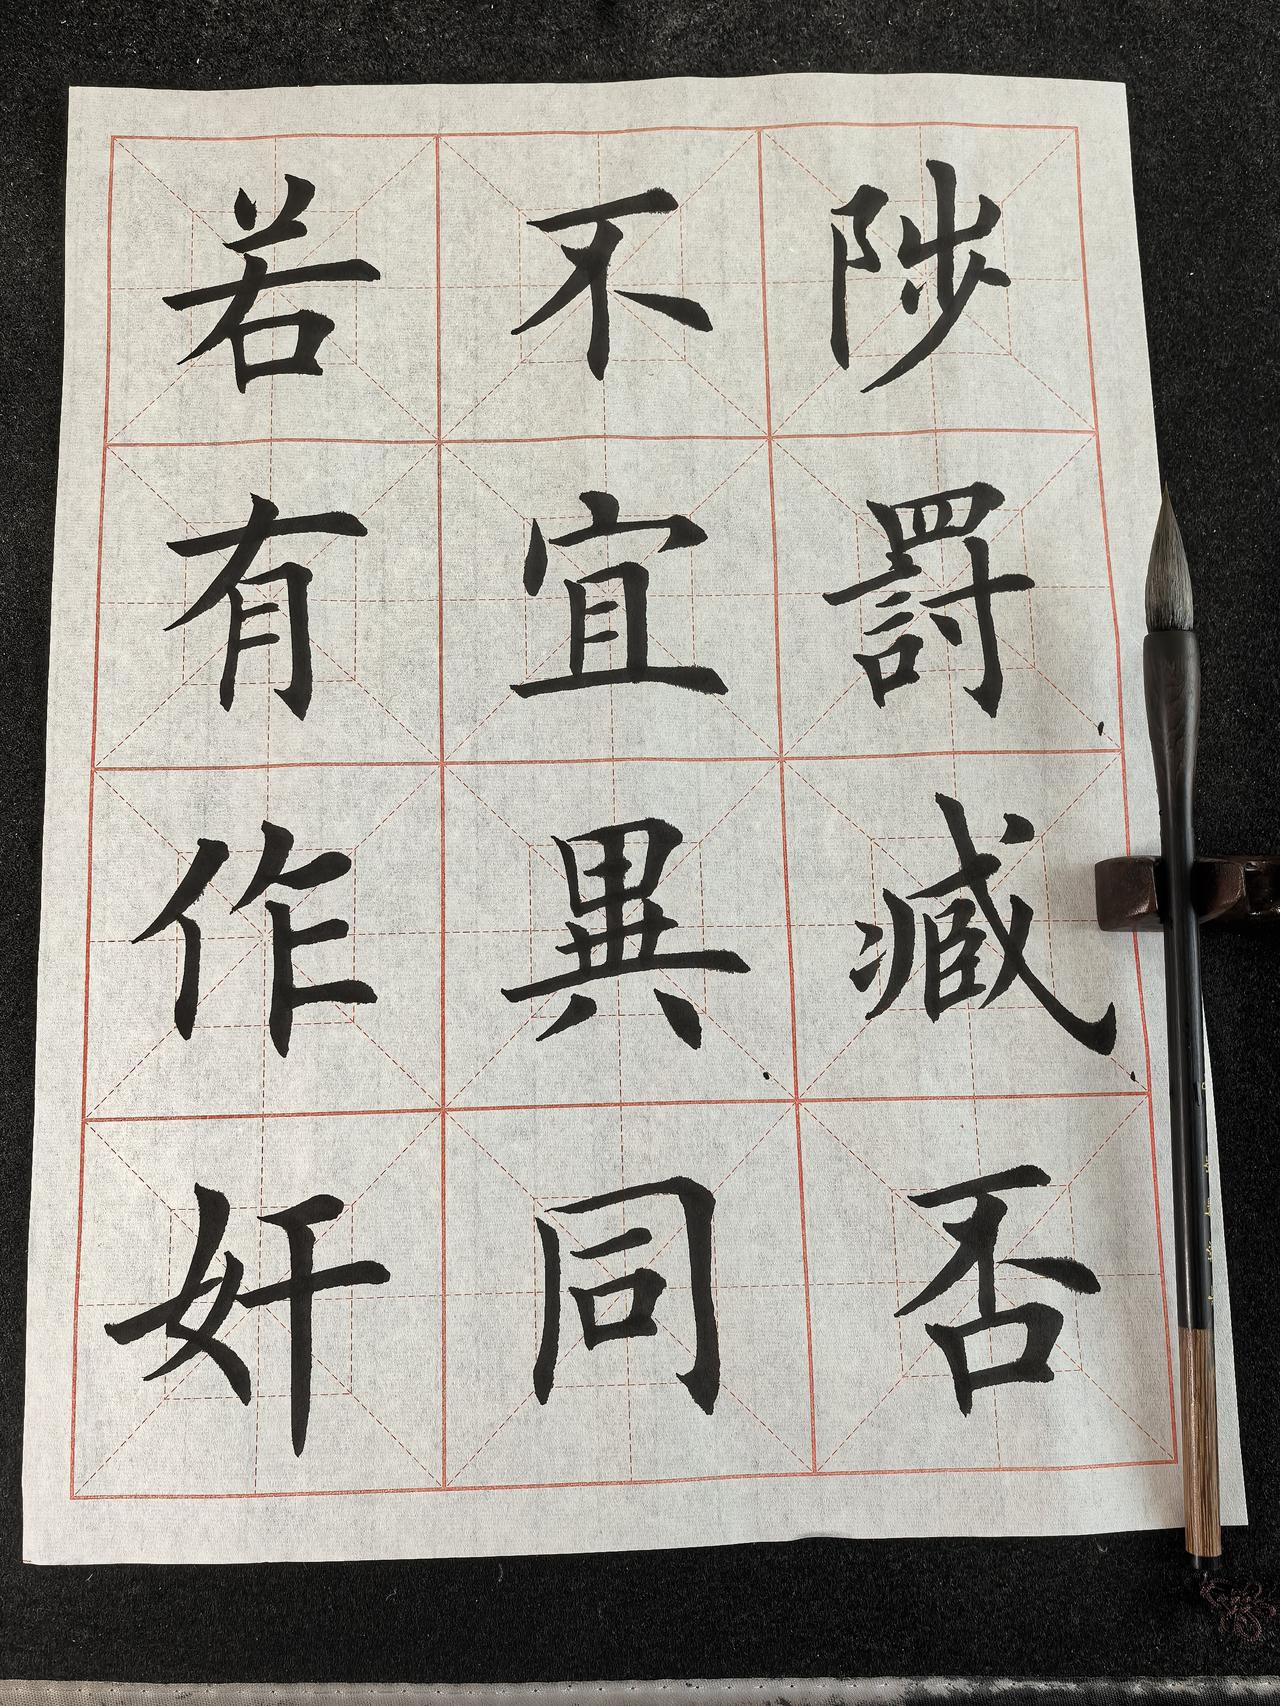 陟罰臧否
不宜異同
若有作奸